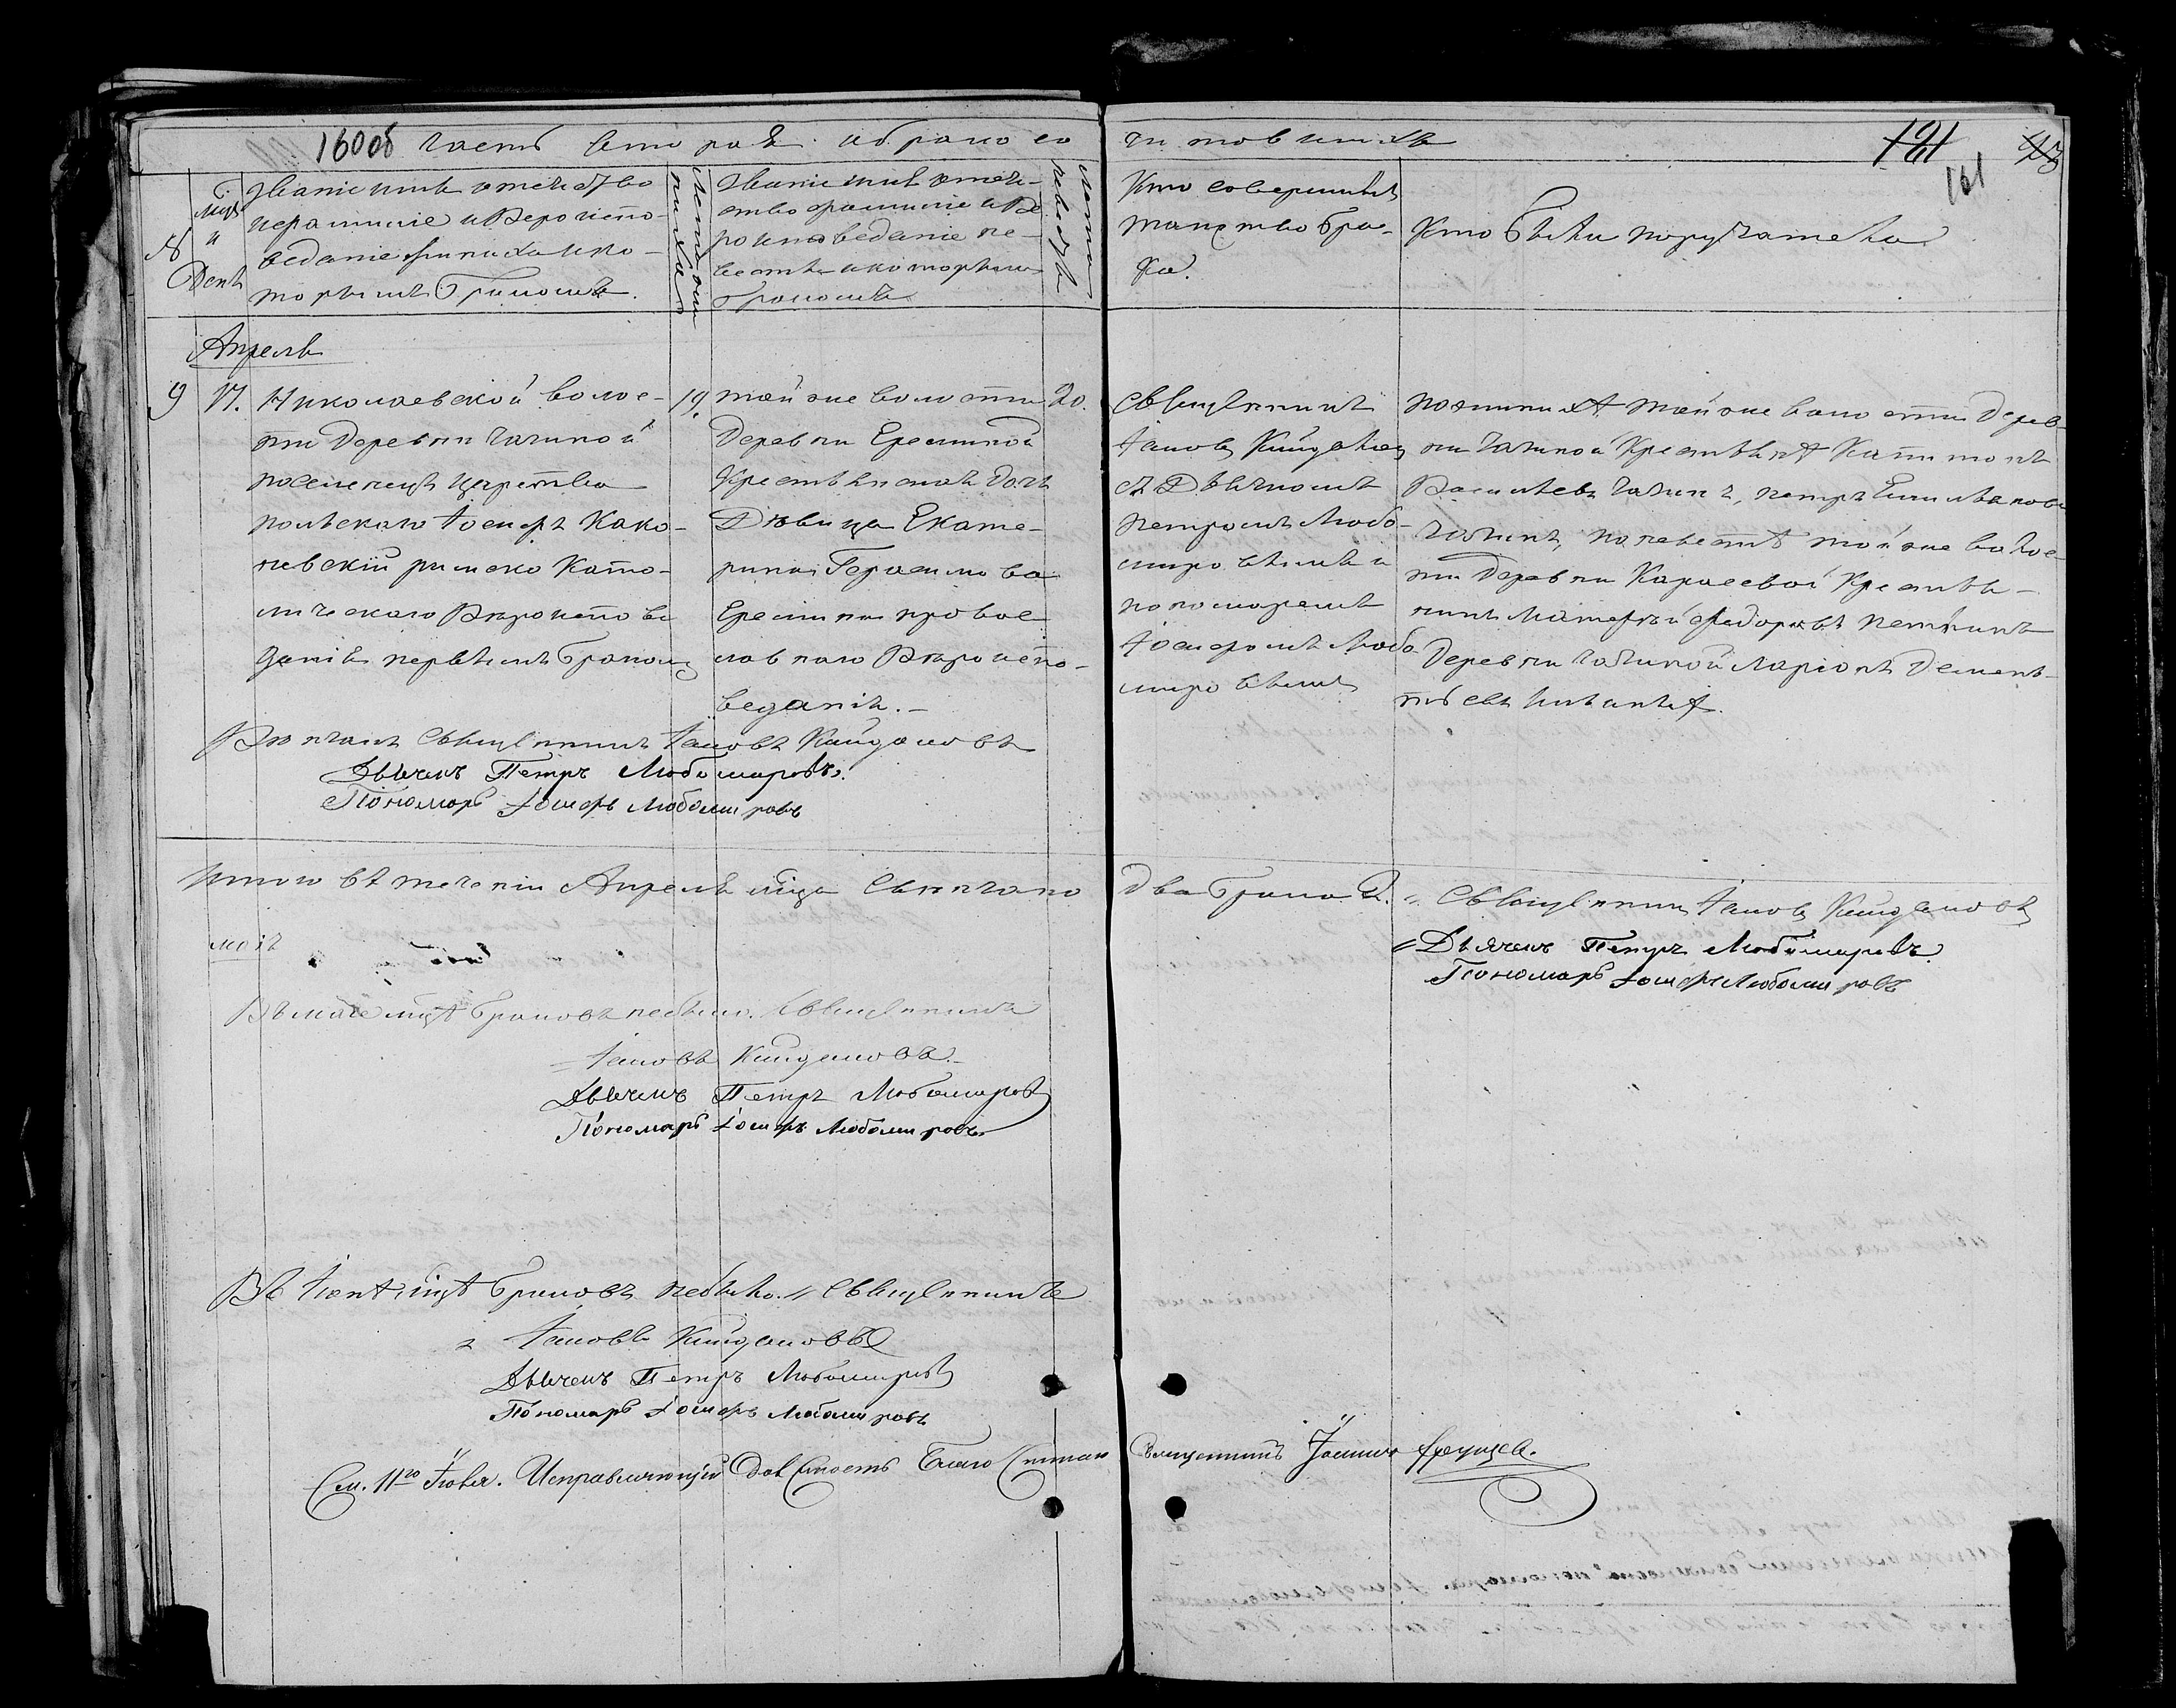 160об Часть вторая о бракосо
четовшихся
121
161
№
Мцъ
и
День
Званiе имя отечество
и фамилiе и Вероиспо-
веданiе жениха и ко-
торымъ бракомъ.
Лета жениха
Званiе имя отече-
ство фамилiе и Ве
роисповеданiе не-
весты и которымъ
бракомъ
Лета невесты
Кто совершилъ
таинство бра-
ка.
Кто были поручатели
Апрель
9 17. Николаевской волос-
ти Деревни
поселенецъ Царства
польскаго Iосифъ Како-
невскiй римско Като-
лическаго Вѣроиспове
данiя первымъ бракомъ
19.
той же волости
Деревни Ереминой
Крестьянская дочь
Дѣвица Екате-
рина Герасимова
Еремина правос
лавнаго Вѣроиспо-
веданiя. –
20.
Священникъ
Iаковъ Кайдаловъ
съ Дьячкомъ
Петромъ Любо-
мировымъ и
пономаремъ
Iосифомъ Любо
мировымъ
По женихѣ той же волости Дерев-
ни Крестьяне Капитонъ
Васильевъ Петръ Емельяновъ
по невестѣ той же волос-
ти Деревни Карасевой Крестья-
нинъ Матфѣй Федоровъ
Деревни Ларiонъ Демен-
тьевъ
Вѣнчалъ Священникъ Iаковъ Кайдаловъ
Дьячекъ Петръ Любомировъ.
Пономарь Iосифъ Любомировъ
Итого въ теченiи Апреля мца Свѣнчано
два брака 2. Священникъ Iаковъ Кайдаловъ
Дьячекъ Петръ Любомировъ
Пономарь Iосифъ Любомировъ
май
Въ мае мцѣ браковъ небыло. Священникъ
Iаковъ Кайдаловъ.
Дьячекъ Петръ Любомировъ
Пономарь Iосифъ Любомировъ
Въ Iюнѣ мцѣ браковъ небыло. Священникъ
Iаковъ Кайдаловъ
Дьячекъ Петръ Любомировъ
Пономарь Iосифъ Любомировъ
См. 11го Iюля. Исправляющiй Должность Благочиннаго Священникъ Iоаннъ